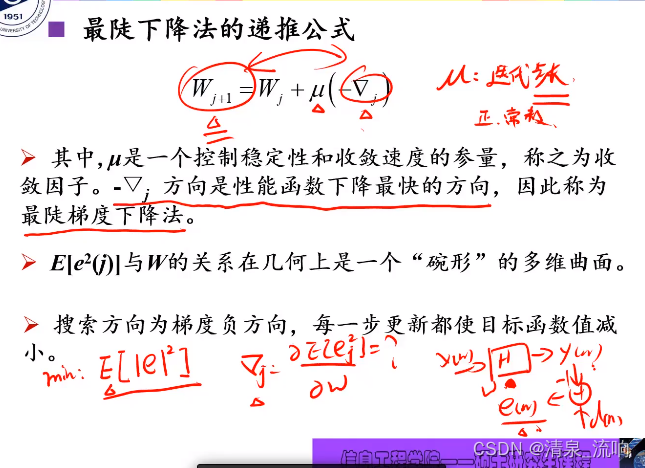 1951
■ 最陡下降法的递推公式
W_{j+1} = W_j + μ(-∇_j)
μ: 迭代步长
正常数
➢ 其中,μ是一个控制稳定性和收敛速度的参量，称之为收
敛因子。-▽j 方向是性能函数下降最快的方向，因此称为
最陡梯度下降法。
➢ E[e²(j)]与W的关系在几何上是一个“碗形”的多维曲面。
➢ 搜索方向为梯度负方向，每一步更新都使目标函数值减
小。
min: E[|e|²]
∇j = ∂E[e²j] / ∂W = ?
x(n) → H → y(n)
W
e(n) ← + ← d(n)
CSDN @清泉_流响